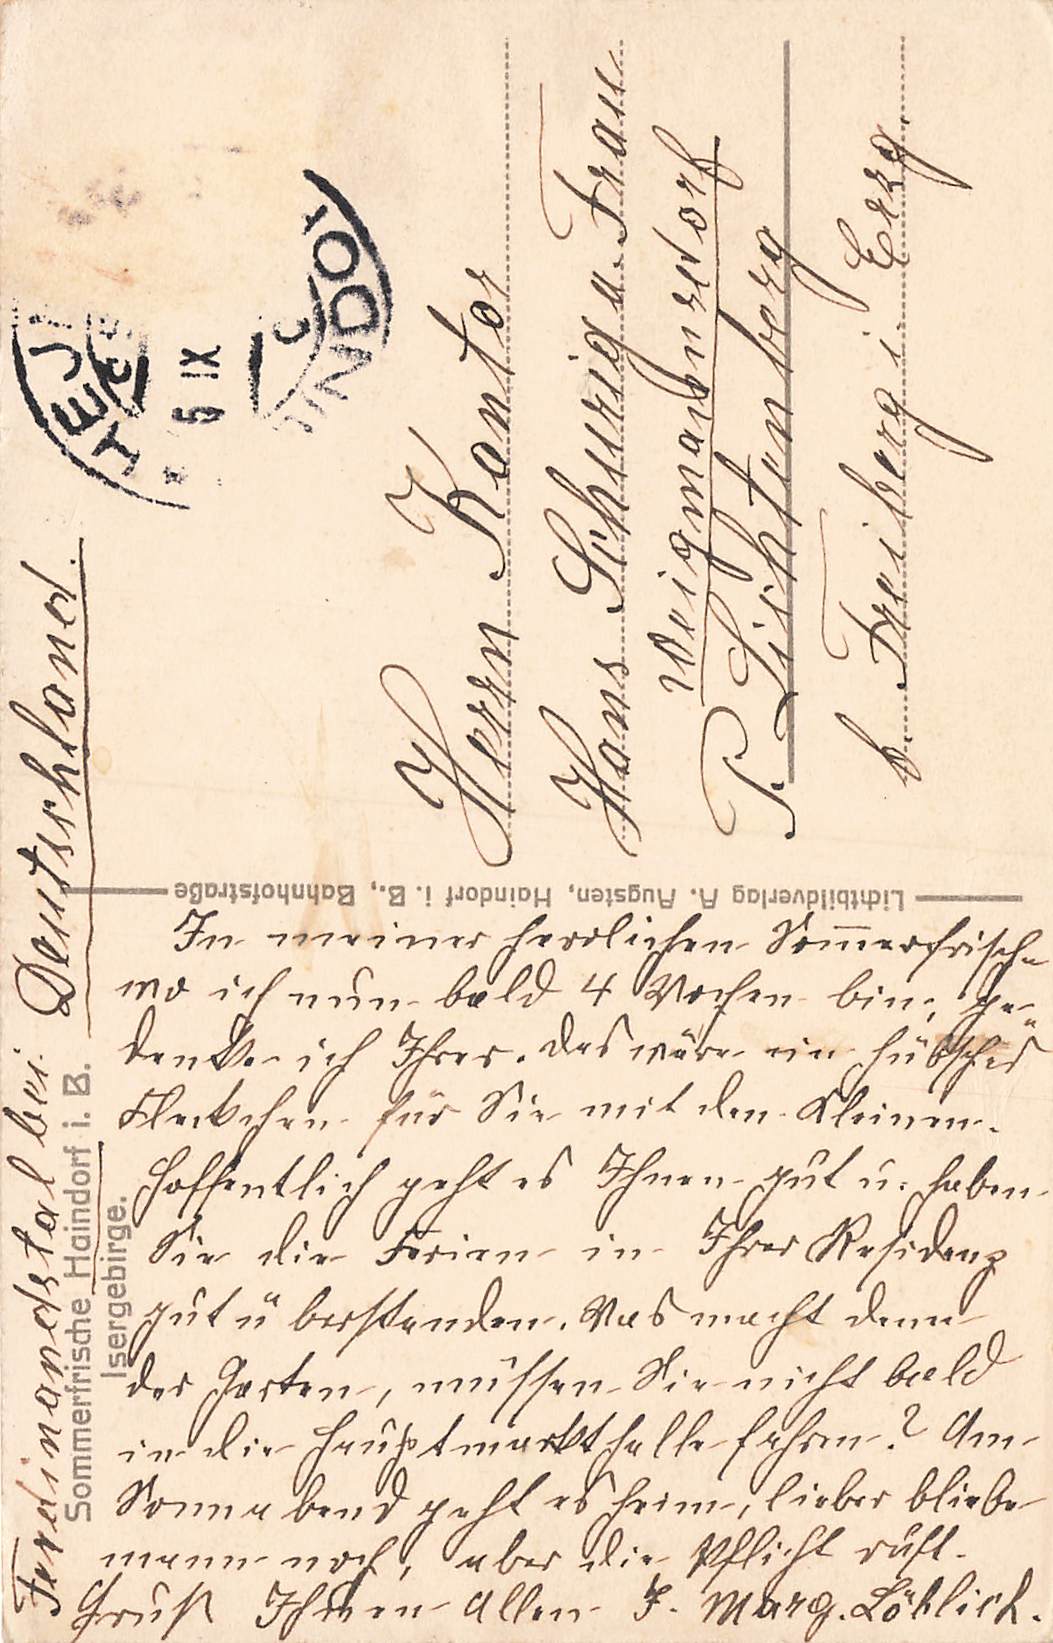 In meiner herrlichen Sommerfrische
wo ich nun bald 4 Wochen bin, ge-
denke ich Ihrer. Das wäre ein hübsches
Fleckchen für Sie mit den Kleinen.
Hoffentlich geht es Ihnen gut u. haben
Sie die Ferien in Ihrer Residenz
gut überstanden. Was macht denn
der Garten, müssen Sie nicht bald
in die Hauptmarkthalle fahren? Am
Sonnabend geht es heim, lieber bliebe
mann noch, aber die Pflicht ruft.
Gruß Ihnen Allen F. Marg. Löblich.
Herrn Kantor
Hans Schurig u. Frau
Weigmannsdorf
P. Lichtenberg
b. Freiberg i. Erzg.
Deutschland.
Ferdinandstal bei
Sommerfrische Haindorf i. B.
Isergebirge.
Lichtbildverlag A. Augsten, Haindorf i. B., Bahnhofstraße
HEJ
6 IX
INDO